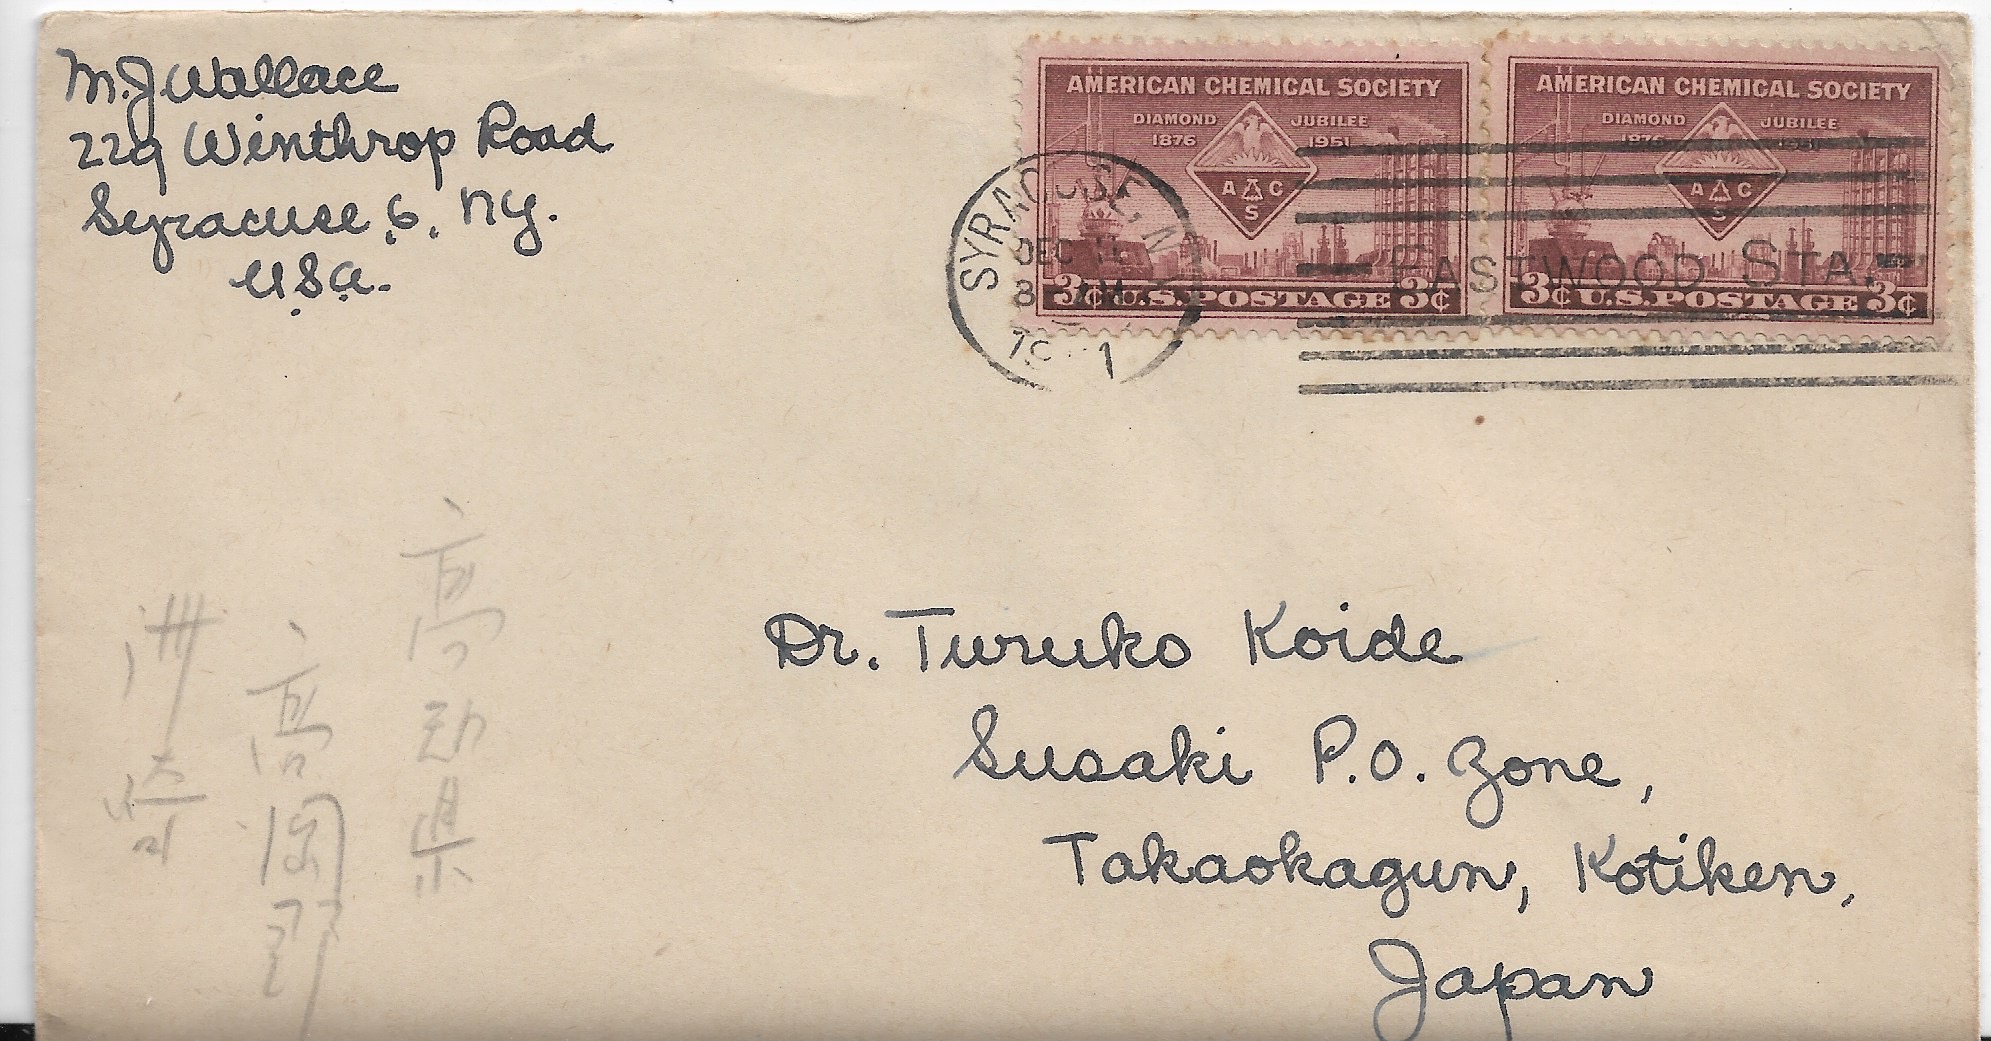 M. J Wallace
229 Winthrop Road
Syracuse, 6, N.Y.
U.S.A.
AMERICAN CHEMICAL SOCIETY
DIAMOND JUBILEE
1876 1951
A C
S
3¢ U.S. POSTAGE 3¢
AMERICAN CHEMICAL SOCIETY
DIAMOND JUBILEE
1876 1951
A C
S
3¢ U.S. POSTAGE 3¢
SYRACUSE, N.Y.
DEC 11
EASTWOOD STA.
Dr. Turuko Koide
Susaki P.O. Zone,
Takaokagun, Kotiken,
Japan
高知県
高岡郡
洲崎